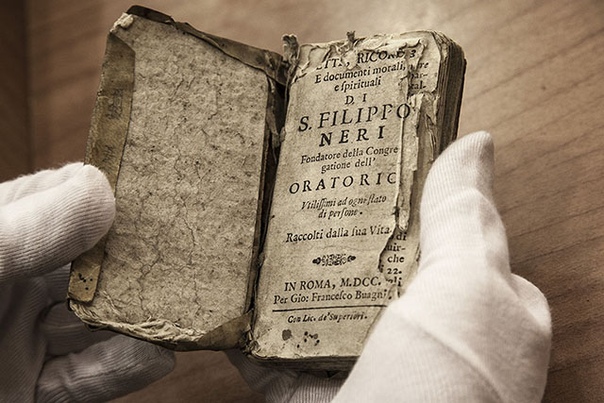 TTI, RICOR
E documenti morali,
e spirituali
D I
S. FILIPPO
NERI
Fondatore della Congre
gatione dell'
ORATORIO
Utilissimi ad ogne stato
di persone.
Raccolti dalla sua Vita
IN ROMA, M.DCC.
Per Gio: Francesco Buagni
Con Lic. de' Superiori.
3
di
uir-
che
i 22.